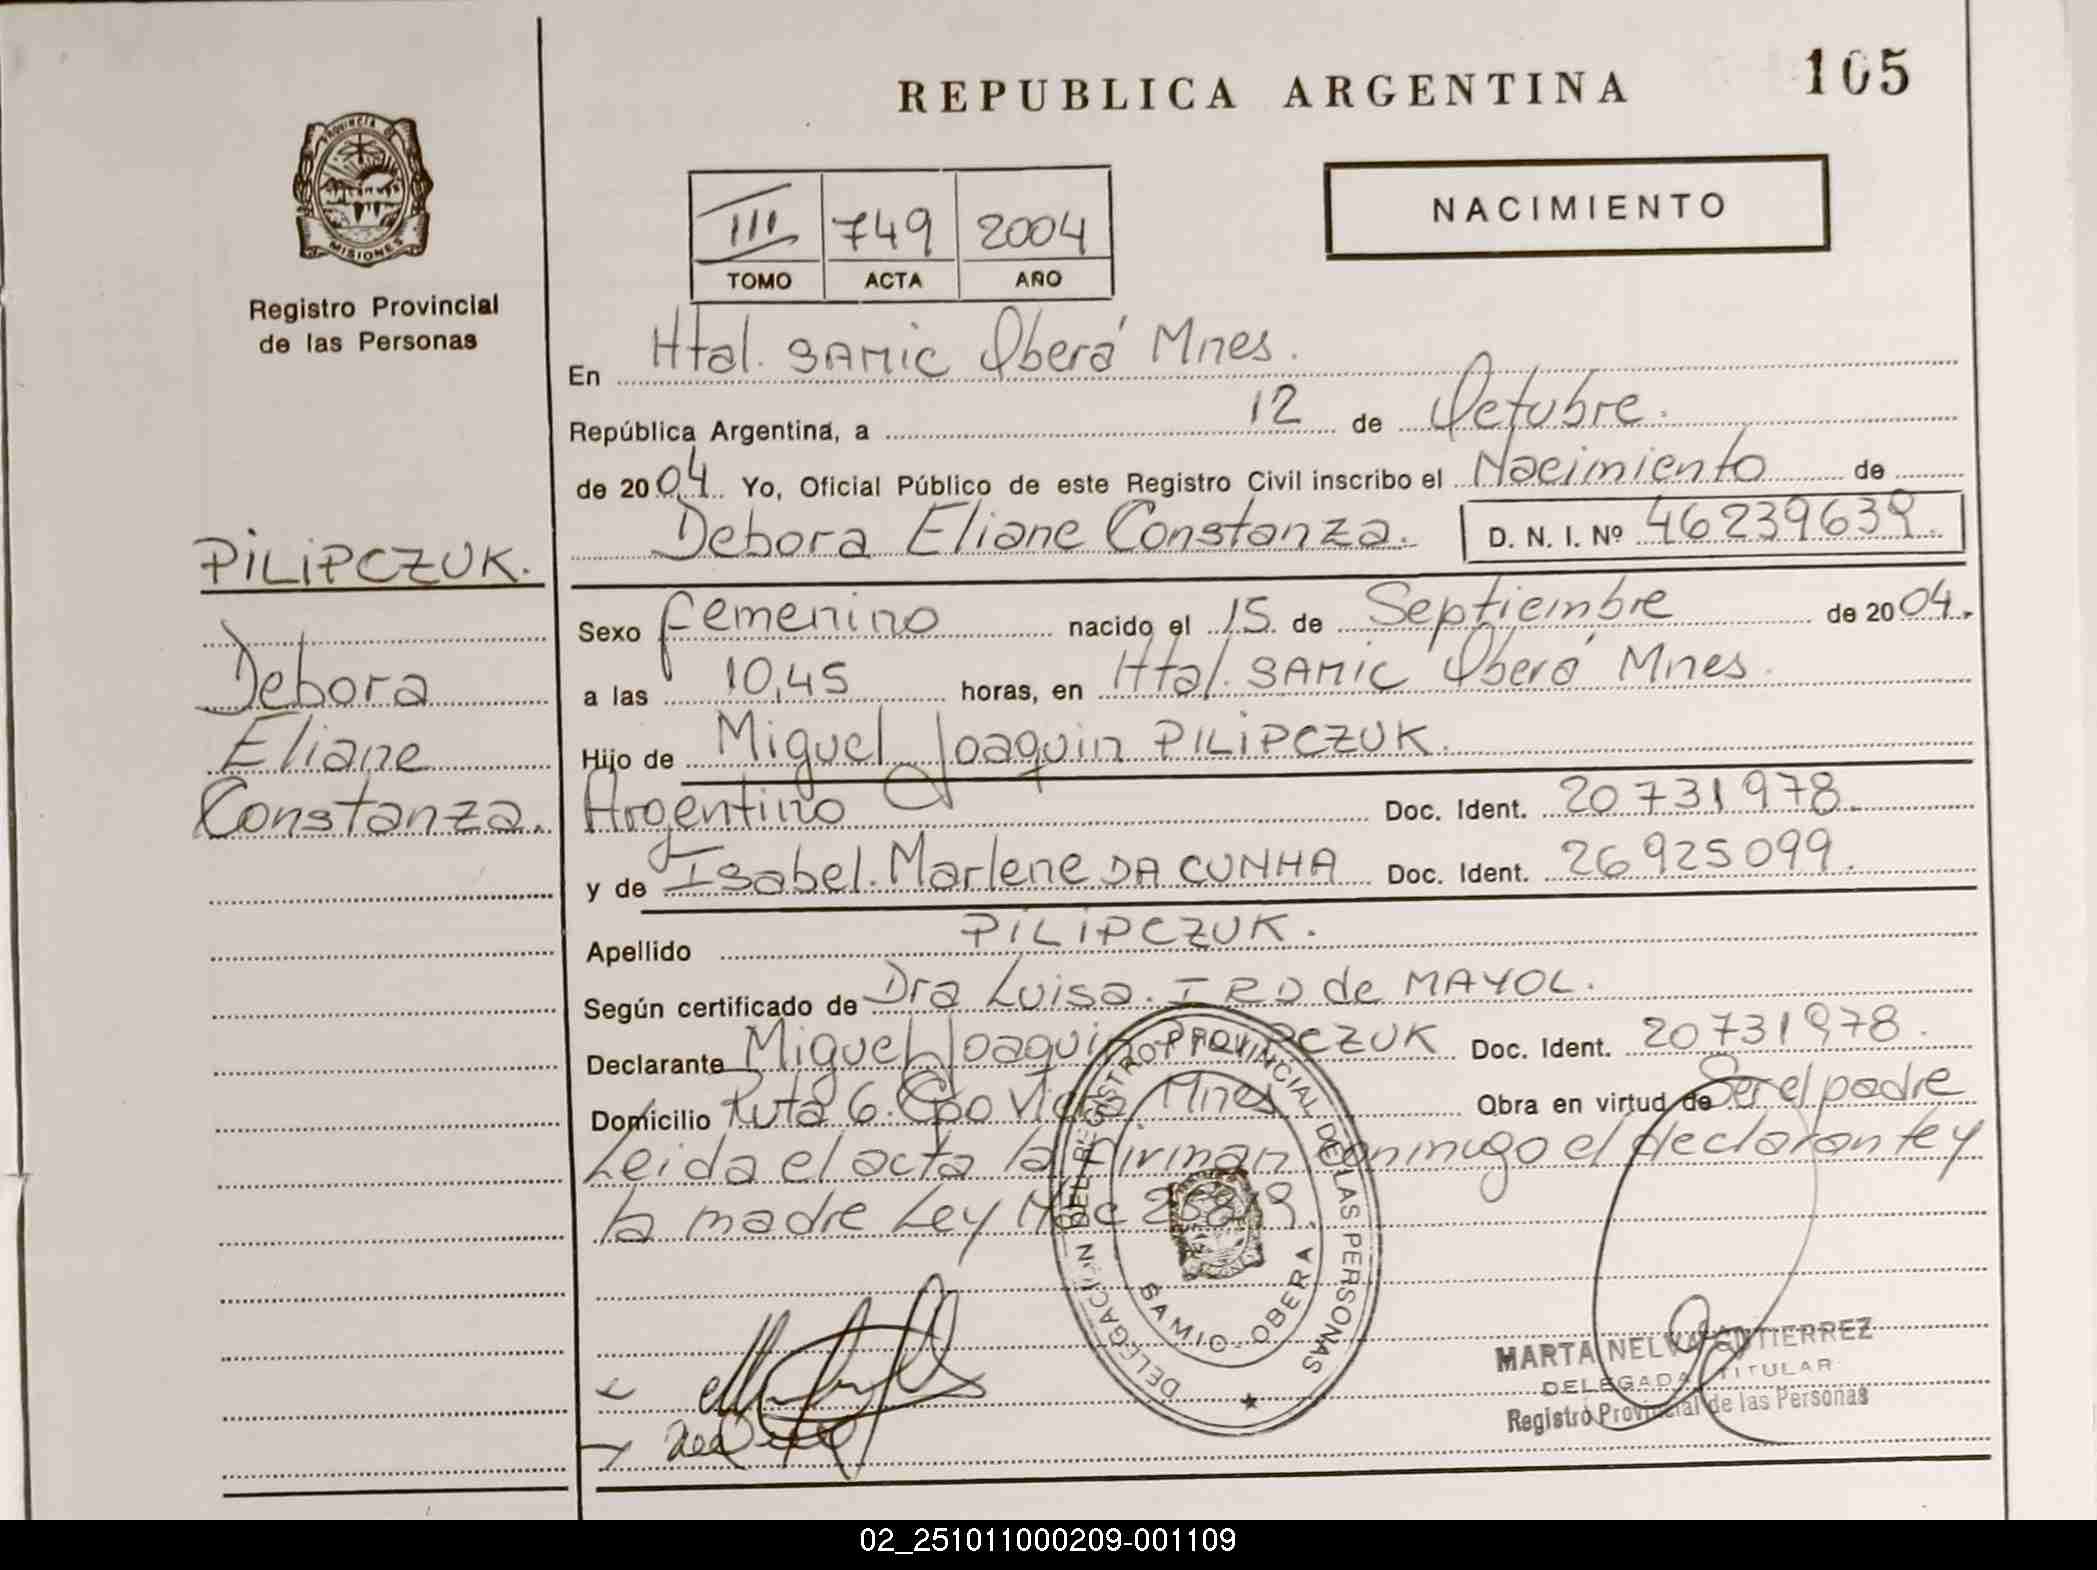 REPUBLICA ARGENTINA
105
PROVINCIA DE
MISIONES
Registro Provincial
de las Personas
III 749 2004
TOMO ACTA AÑO
NACIMIENTO
En Htal. SAMIC Oberá Mnes.
República Argentina, a 12 de Octubre.
de 2004 Yo, Oficial Público de este Registro Civil inscribo el Nacimiento de
Debora Eliane Constanza. D. N. I. Nº 46239639.
PILIPCZUK.
Debora
Eliane
Constanza.
Sexo femenino nacido el 15 de Septiembre de 2004.
a las 10,45 horas, en Htal. SAMIC Oberá Mnes.
Hijo de Miguel Joaquin PILIPCZUK.
Argentino Doc. Ident. 20731978.
y de Isabel. Marlene DA CUNHA Doc. Ident. 26925099.
Apellido PILIPCZUK.
Según certificado de Dra Luisa. IRD de MAYOL.
Declarante Miguel Joaquin PILIPCZUK Doc. Ident. 20731978.
Domicilio Ruta 6. Cpo Viera Mnes Obra en virtud de Ser el padre
Leida el acta la firman conmigo el declarante y
la madre Ley
DELEGACION DEL REGISTRO PROVINCIAL DE LAS PERSONAS
SAMIC - OBERA
MARTA NELVA GUTIERREZ
DELEGADA TITULAR
Registro Provincial de las Personas
02_251011000209-001109